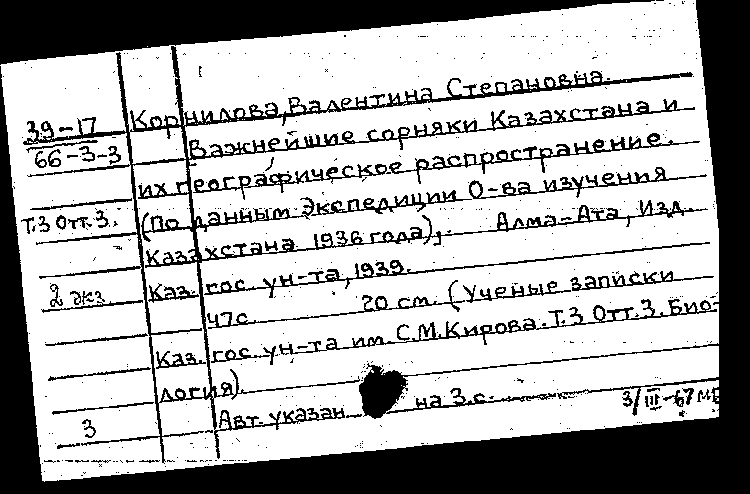 Корнилова, Валентина Степановна.
39-17
66-3-3
Важнейшие сорняки Казахстана и
их географическое распространение.
Т.3 Отт.3. (По данным Экспедиции О-ва изучения
Казахстана 1936 года),. Алма-Ата, Изд.
2 экз Каз. гос. ун-та, 1939.
47с. 20 см. (Ученые записки
Каз. гос. ун-та им. С.М.Кирова. Т.3 Отт.3. Био-
логия).
3 Авт. указан на 3.с. 3/III-67